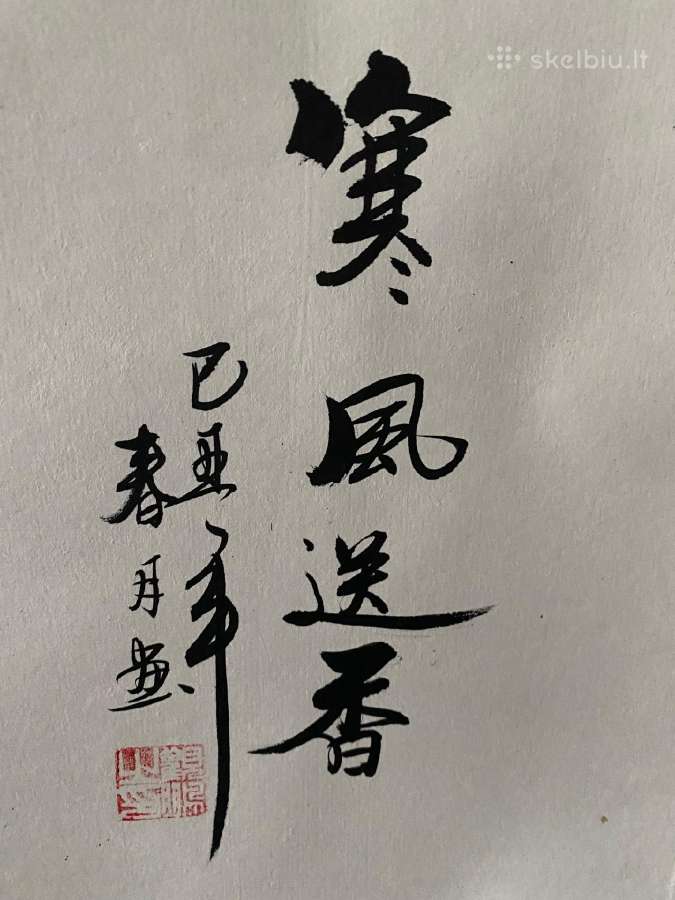 skelbiu.lt
寒風送香
己丑年
春月畫